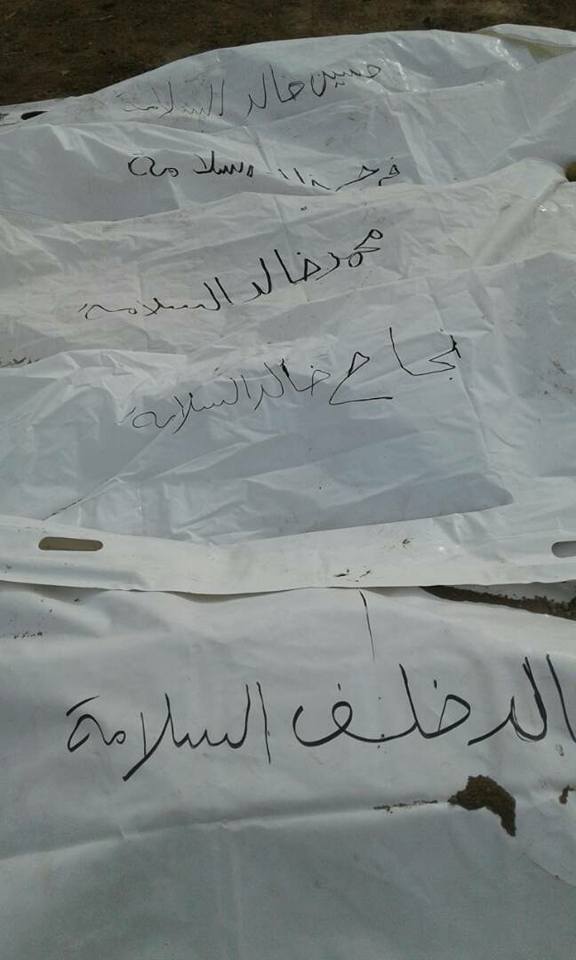 حسين خالد السلامة
سلامة
محمد خالد السلامة
نجاح خالد السلامة
الد خلف السلامة